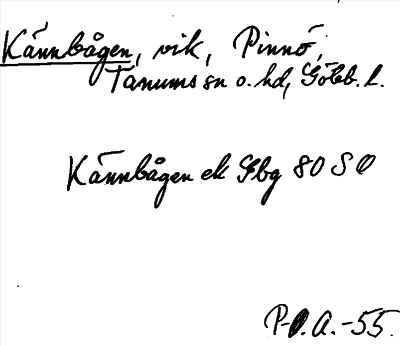 Kännbågen, vik, Pinnö,
Tanums sn o. hd, Göteb. l.
Kännbågen ek Gbg 80 SO
P-O.A.-55.